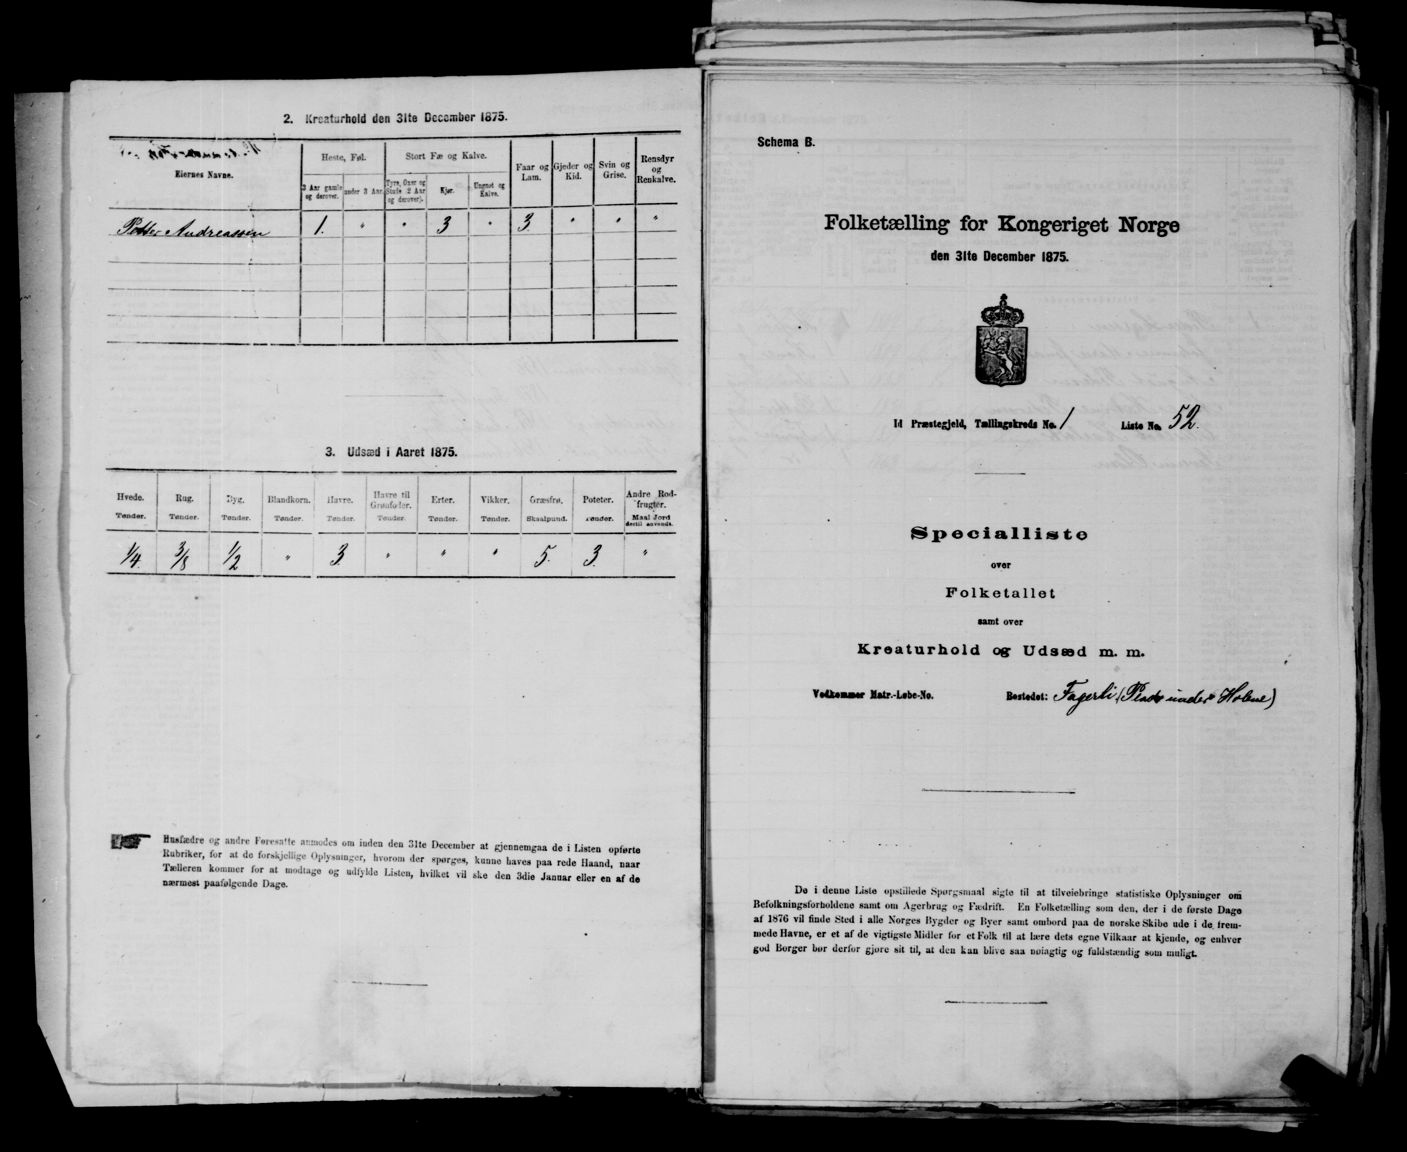 2. Kreaturhold den 31te December 1875.
Eiernes Navne.
Heste, Føl.
3 Aar gamle og derover.
under 3 Aar.
Stort Fæ og Kalve.
Tyre, Oxer og Stude 2 Aar og derover).
Kjør.
Ungnøt og Kalve.
Faar og Lam.
Gjeder og Kid.
Svin og Grise.
Rensdyr og Renkalve.
Petter Andreassen 1. " " 3 " 3. " " "
3. Udsæd i Aaret 1875.
Hvede. Rug. Byg. Blandkorn. Havre. Havre til Grønfoder. Erter. Vikker. Græsfrø. Poteter. Andre Rodfrugter.
Tønder. Tønder. Tønder. Tønder. Tønder. Tønder. Tønder. Tønder. Skaalpund. Tønder. Maal Jord dertil anvendt.
1/4. 3/8 1/2 " 3. " " " 5. 3. "
Husfædre og andre Foresatte anmodes om inden den 31te December at gjennemgaa de i Listen opførte
Rubriker, for at de forskjellige Oplysninger, hvorom der spørges, kunne haves paa rede Haand, naar
Tælleren kommer for at modtage og udfylde Listen, hvilket vil ske den 3die Januar eller en af de
nærmest paafølgende Dage.
Schema B.
Folketælling for Kongeriget Norge
den 31te December 1875.
Id Præstegjeld, Tællingskreds No. 1 Liste No. 52.
Specialliste
over
Folketallet
samt over
Kreaturhold og Udsæd m. m.
Vedkommer Matr.-Løbe-No. Bostedet: Fagerli (Plads under Holene)
De i denne Liste opstillede Spørgsmaal sigte til at tilveiebringe statistiske Oplysninger om
Befolkningsforholdene samt om Agerbrug og Fædrift. En Folketælling som den, der i de første Dage
af 1876 vil finde Sted i alle Norges Bygder og Byer samt ombord paa de norske Skibe ude i de frem-
mede Havne, er et af de vigtigste Midler for et Folk til at lære dets egne Vilkaar at kjende, og enhver
god Borger bør derfor gjøre sit til, at den kan blive saa nøiagtig og fuldstændig som muligt.